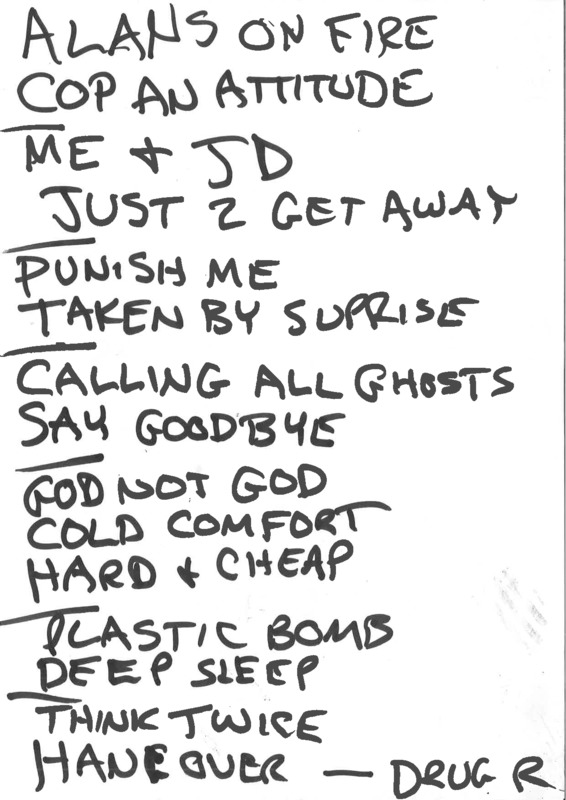 ALANS ON FIRE
COP AN ATTITUDE
ME & JD
JUST 2 GET AWAY
PUNISH ME
TAKEN BY SUPRISE
CALLING ALL GHOSTS
SAY GOODBYE
GOD NOT GOD
COLD COMFORT
HARD & CHEAP
PLASTIC BOMB
DEEP SLEEP
THINK TWICE
HANEOVER — DRUG R